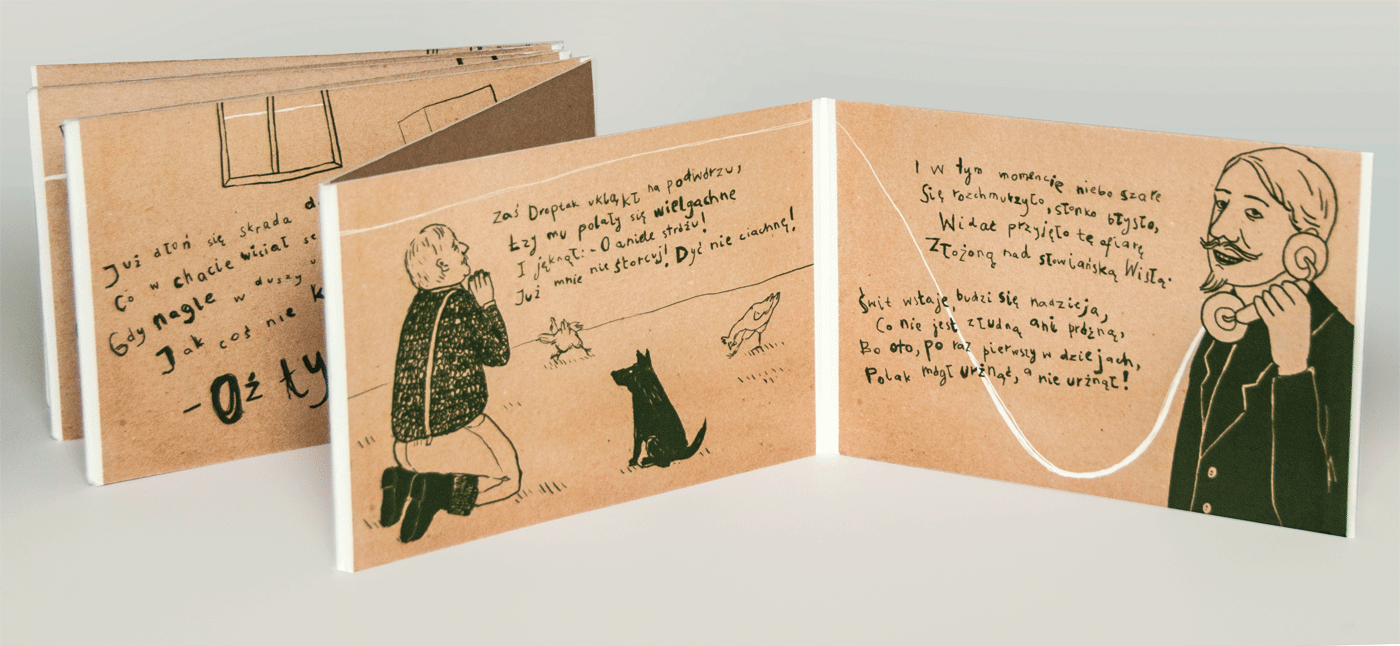 Już dłoń się skrada d
Co w chacie wisiał se
Gdy nagle w duszy u
Jak coś nie k
- Oź ty
Zaś Droptak ukląkł na podwórzu,
Łzy mu polały się wielgachne
I jęknął: - O aniele stróżu!
Już mnie nie štorcuj! Dyć nie ciachnę!
I w tym momencie niebo szare
Się rozchmurzyło, słonko błysło,
Widać przyjęło tę ofiarę
Złożoną nad słowiańską Wisłą.
Świt wstaje budzi się nadzieja,
Co nie jest złudną ani próżną,
Bo oto, po raz pierwszy w dziejach,
Polak mógł urżnąć, a nie urżnął!